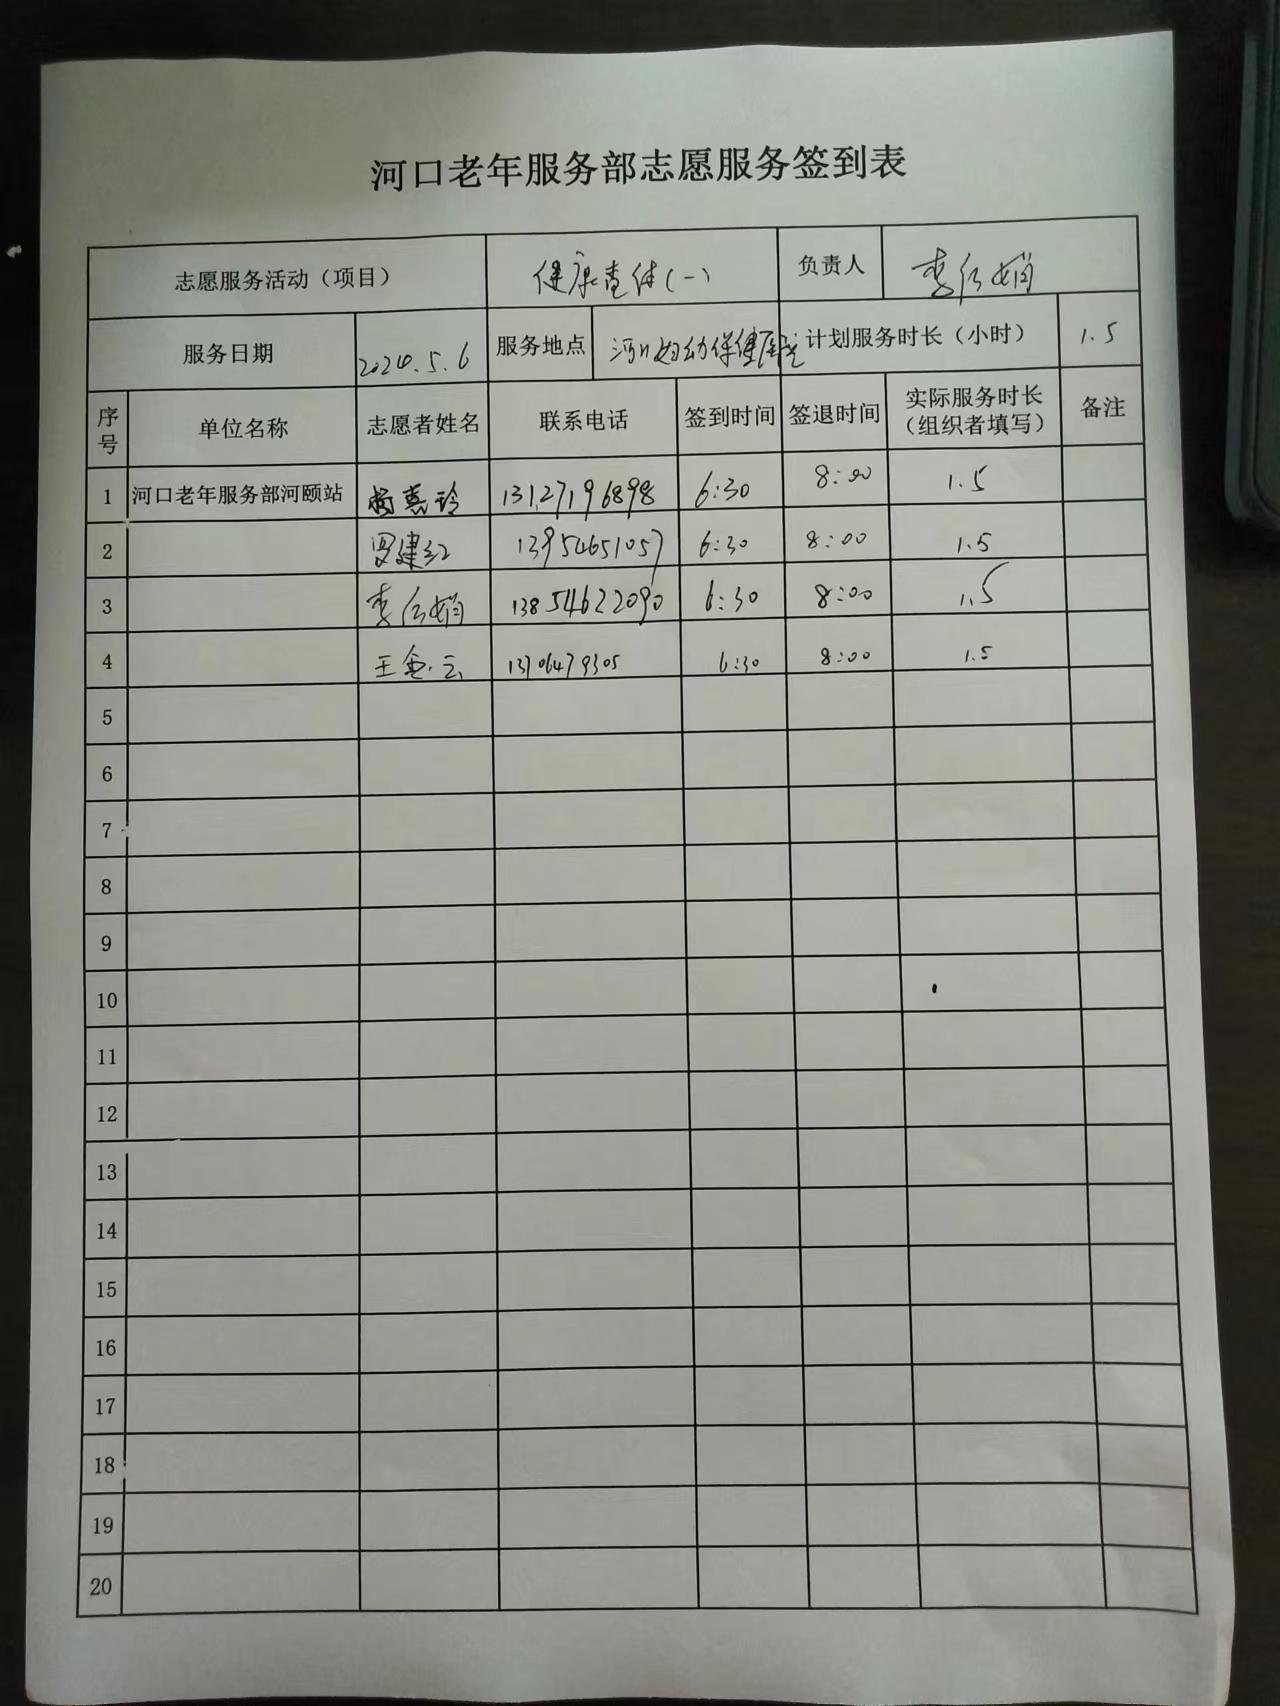 河口老年服务部志愿服务签到表
志愿服务活动（项目） 健康查体(一) 负责人 李
服务日期 2024.5.6 服务地点 河口妇幼保健医院 计划服务时长（小时） 1.5
序号 单位名称 志愿者姓名 联系电话 签到时间 签退时间 实际服务时长（组织者填写） 备注
1 河口老年服务部河颐站 杨惠玲 13127196898 6:30 8:00 1.5
2 罗建红 13954651057 6:30 8:00 1.5
3 李 13854622090 6:30 8:00 1.5
4 王 云 13706479305 6:30 8:00 1.5
5
6
7
8
9
10
11
12
13
14
15
16
17
18
19
20